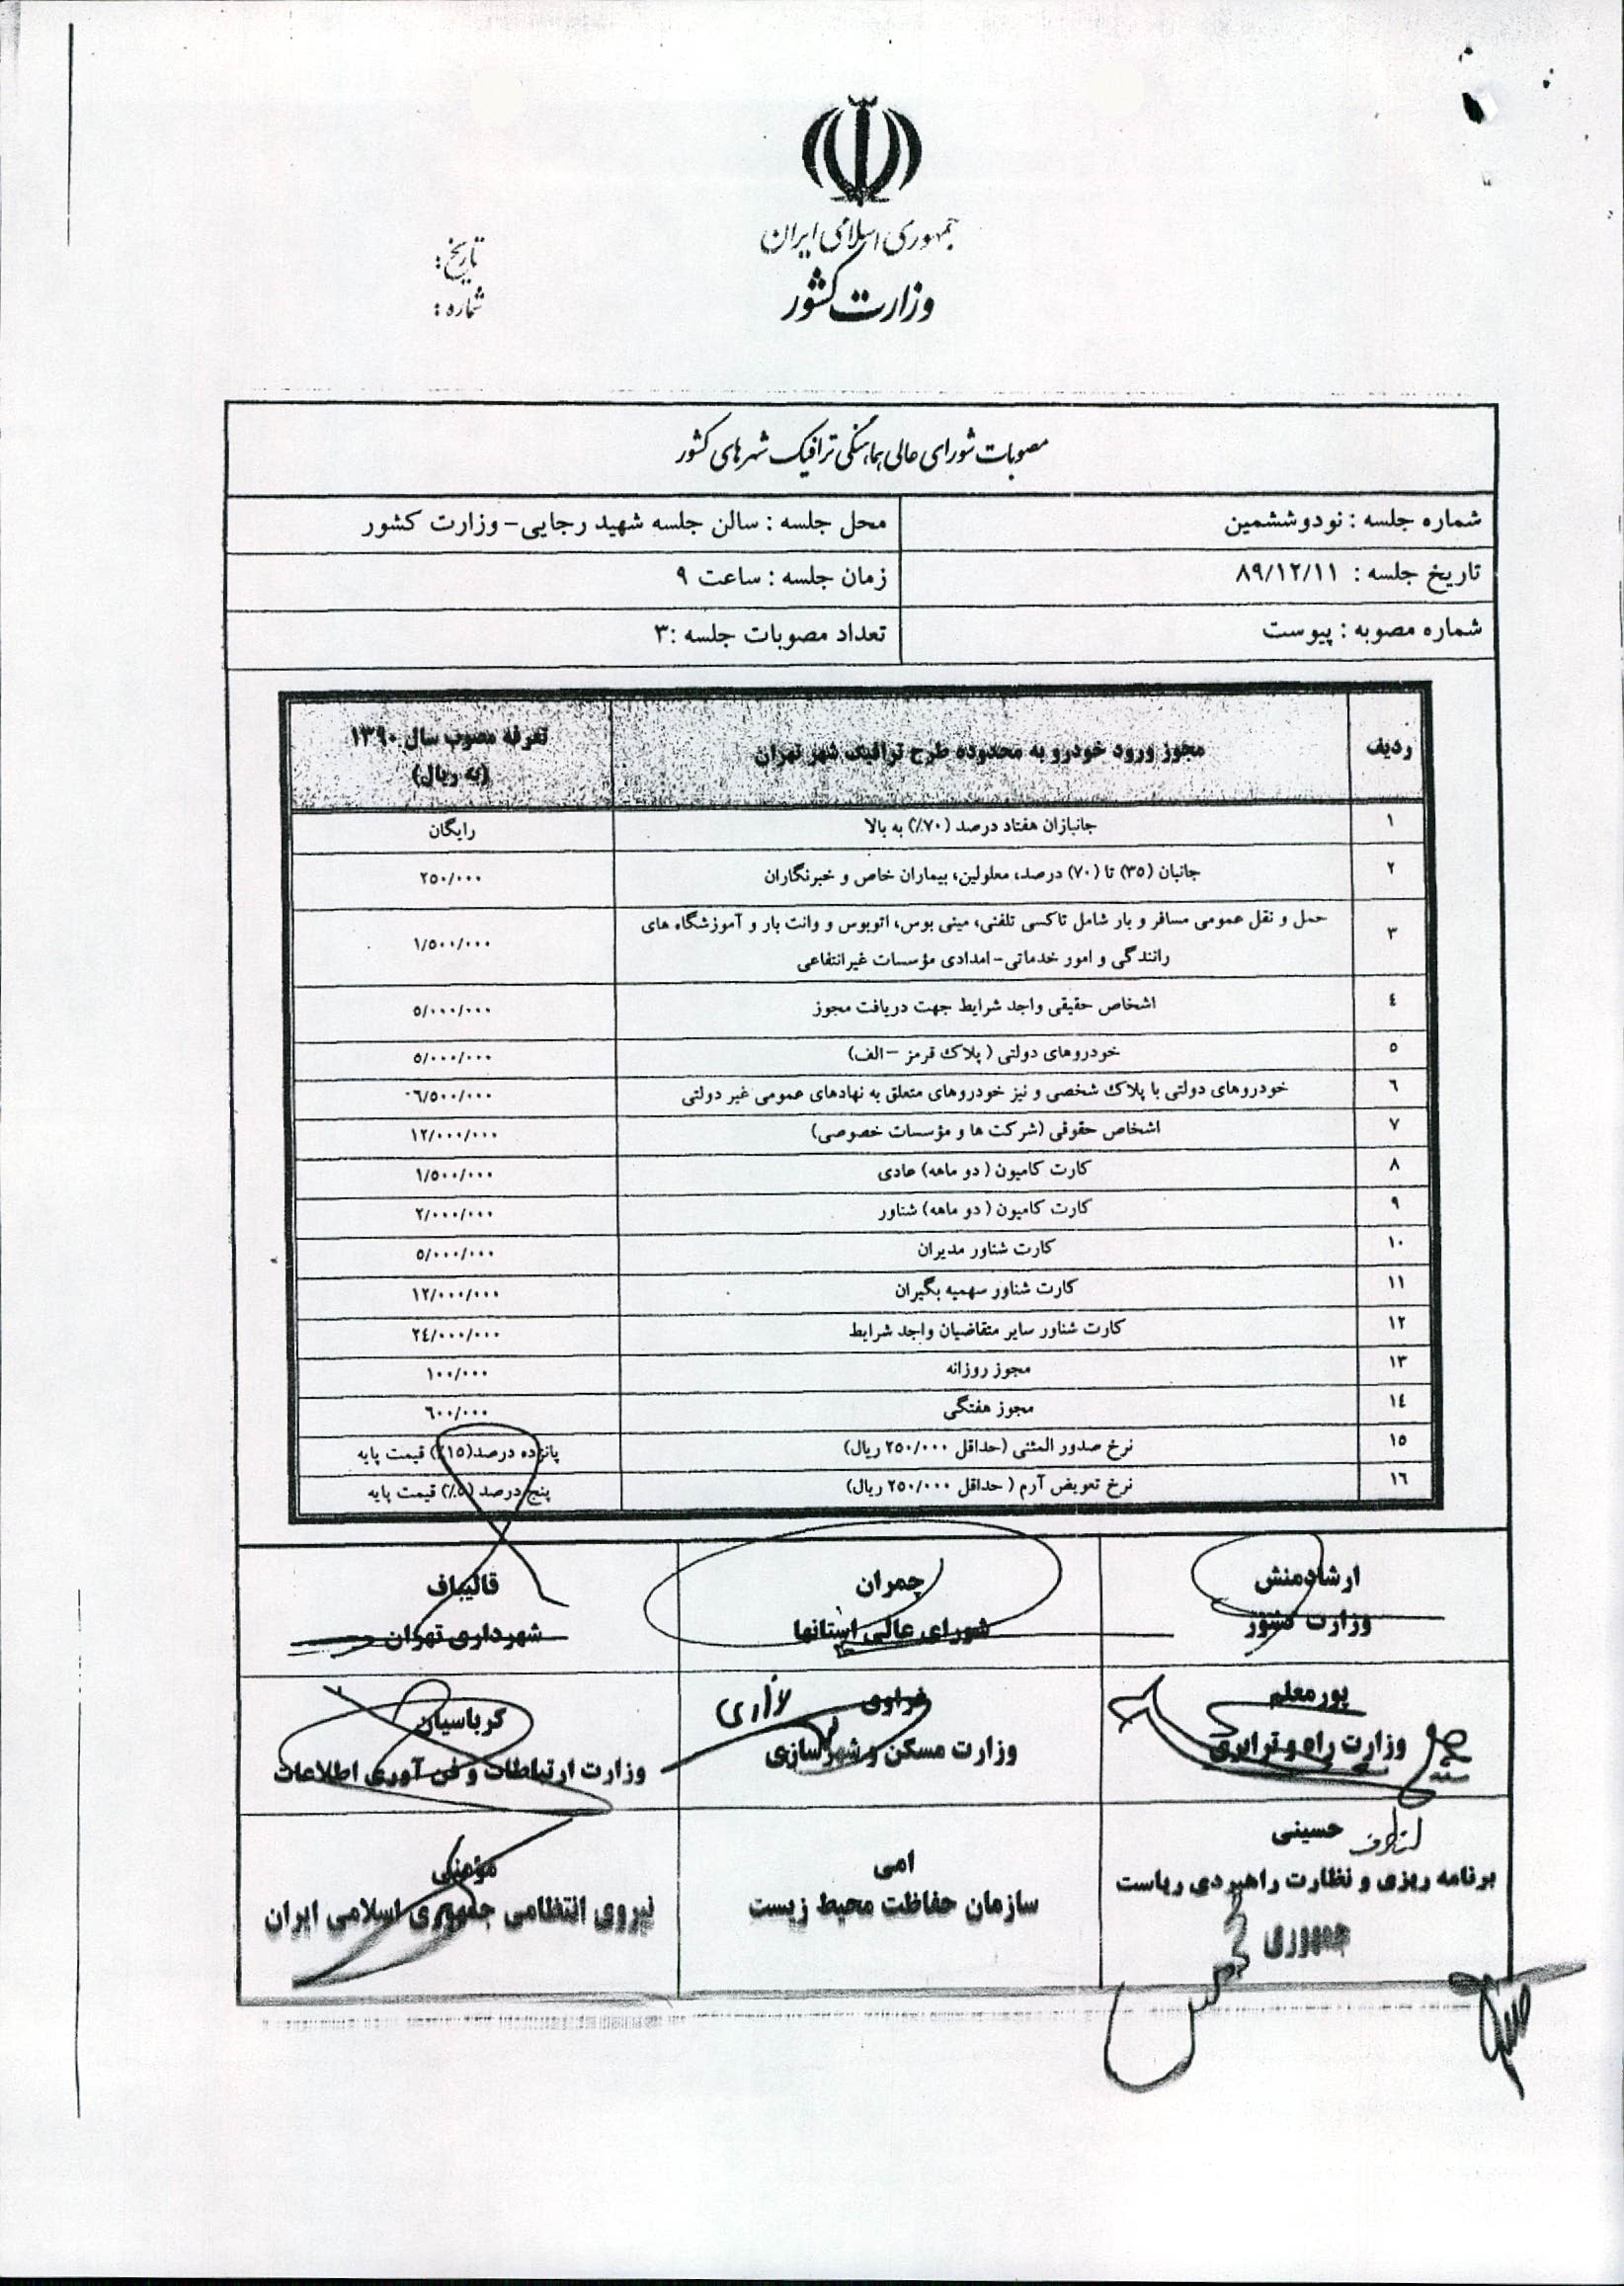 جمهوری اسلامی ایران
وزارت کشور
تاریخ:
شماره:
مصوبات شورای عالی هماهنگی ترافیک شهرهای کشور
شماره جلسه : نودوششمین
محل جلسه : سالن جلسه شهید رجایی- وزارت کشور
تاریخ جلسه : ٨٩/١٢/١١
زمان جلسه : ساعت ٩
شماره مصوبه : پیوست
تعداد مصوبات جلسه :٣
ردیف
مجوز ورود خودرو به محدوده طرح ترافیک شهر تهران
تعرفه مصوب سال ١٣٩٠
(به ریال)
١
جانبازان هفتاد درصد (٧٠٪) به بالا
رایگان
٢
جانبان (٣٥) تا (٧٠) درصد، معلولین، بیماران خاص و خبرنگاران
٢٥٠/٠٠٠
٣
حمل و نقل عمومی مسافر و بار شامل تاکسی تلفنی، مینی بوس، اتوبوس و وانت بار و آموزشگاه های
رانندگی و امور خدماتی- امدادی مؤسسات غیرانتفاعی
١/٥٠٠/٠٠٠
٤
اشخاص حقیقی واجد شرایط جهت دریافت مجوز
٥/٠٠٠/٠٠٠
٥
خودروهای دولتی ( پلاک قرمز –الف)
٥/٠٠٠/٠٠٠
٦
خودروهای دولتی با پلاک شخصی و نیز خودروهای متعلق به نهادهای عمومی غیر دولتی
٦/٥٠٠/٠٠٠
٧
اشخاص حقوقی (شرکت ها و مؤسسات خصوصی)
١٢/٠٠٠/٠٠٠
٨
کارت کامیون ( دو ماهه) عادی
١/٥٠٠/٠٠٠
٩
کارت کامیون ( دو ماهه) شناور
٢/٠٠٠/٠٠٠
١٠
کارت شناور مدیران
٥/٠٠٠/٠٠٠
١١
کارت شناور سهمیه بگیران
١٢/٠٠٠/٠٠٠
١٢
کارت شناور سایر متقاضیان واجد شرایط
٢٤/٠٠٠/٠٠٠
١٣
مجوز روزانه
١٠٠/٠٠٠
١٤
مجوز هفتگی
٦٠٠/٠٠٠
١٥
نرخ صدور المثنی (حداقل ٢٥٠/٠٠٠ ریال)
پانزده درصد(١٥٪) قیمت پایه
١٦
نرخ تعویض آرم ( حداقل ٢٥٠/٠٠٠ ریال)
پنج درصد (٥٪) قیمت پایه
ارشادمنش
وزارت کشور
چمران
شورای عالی استانها
قالیباف
شهرداری تهران
پورمعلم
وزارت راه و ترابری
وزارت مسکن و شهرسازی
کرباسیان
وزارت ارتباطات و فن آوری اطلاعات
از طرف حسینی
برنامه ریزی و نظارت راهبردی ریاست
جمهوری
امی
سازمان حفاظت محیط زیست
مؤمنی
نیروی انتظامی جمهوری اسلامی ایران